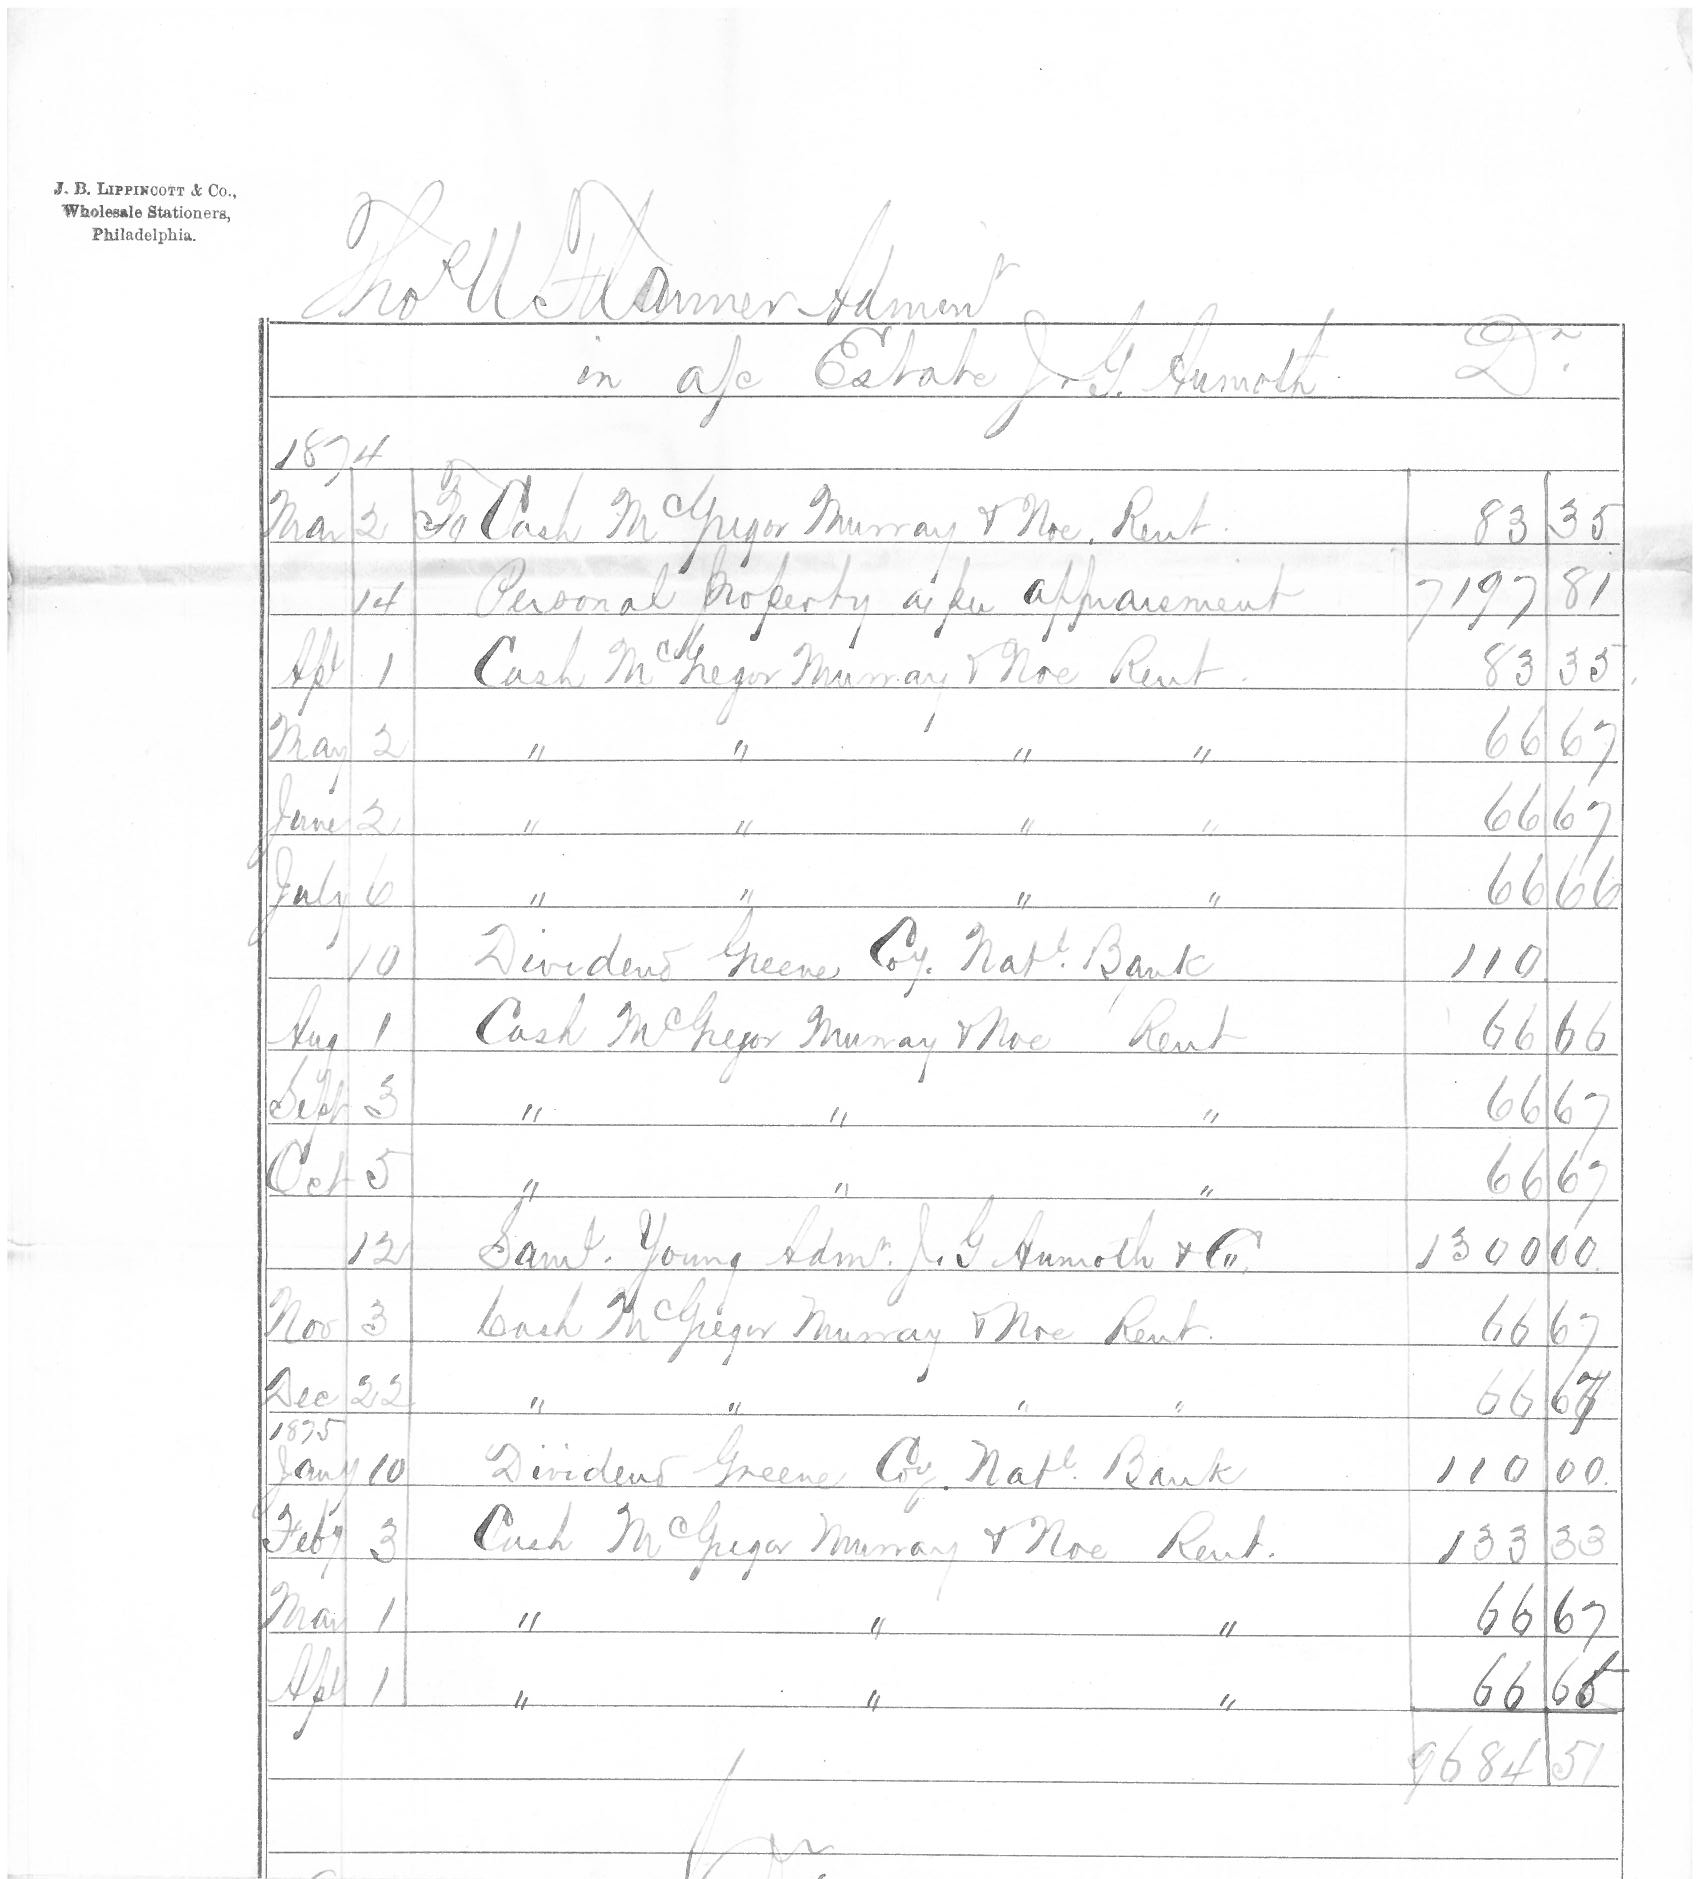 J. B. LIPPINCOTT & Co.,
Wholesale Stationers,
Philadelphia.
Thos Adminr
in a/c Estate J. G. Aumoth Dr.
1874
Mar 2 To Cash McGregor Murray & Noe. Rent. 83 35
14 Personal property as per appraisment 7197 81
Apl 1 Cash McGregor Murray & Noe Rent. 83 35
May 2 " " " " 66 67
June 2 " " " " 66 67
July 6 " " " " 66 66
10 Dividend Greene Coy. Natl. Bank 110
Aug 1 Cash McGregor Murray & Noe Rent 66 66
Sept 3 " " " 66 67
Oct 5 " " " 66 67
12 Saml. Young Admr. J. G Aumoth & Co. 1300 00
Nov 3 Cash McGregor Murray & Noe Rent. 66 67
Dec 22 " " " " 66 67
1875
Jany 10 Dividend Greene Coy. Natl. Bank 110 00
Feby 3 Cash McGregor Murray & Noe Rent. 133 33
Mar 1 " " " 66 67
Apl 1 " " " 66 65
9684 51